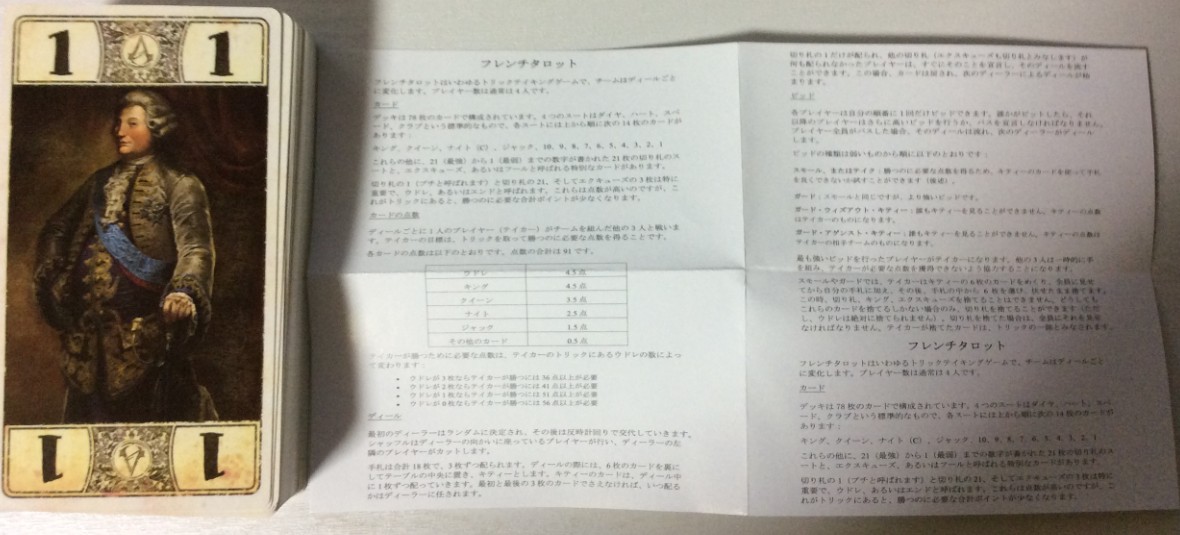 1
1
1
1
フレンチタロット
フレンチタロットはいわゆるトリックテイキングゲームで、チームはディールごと
に変化します。プレイヤー数は通常は4人です。
カード
デッキは78枚のカードで構成されています。4つのスートはダイヤ、ハート、スペ
ード、クラブという標準的なもので、各スートには上から順に次の14枚のカードが
あります：
キング、クイーン、ナイト（C）、ジャック、10、9、8、7、6、5、4、3、2、1
これらの他に、21（最強）から1（最弱）までの数字が書かれた21枚の切り札のス
ートと、エクスキューズ、あるいはフールと呼ばれる特別なカードがあります。
切り札の1（プチと呼ばれます）と切り札の21、そしてエクスキューズの3枚は特に
重要で、ウドレ、あるいはエンドと呼ばれます。これらは点数が高いのですが、こ
れがトリックにあると、勝つのに必要な合計ポイントが少なくなります。
カードの点数
ディールごとに1人のプレイヤー（テイカー）がチームを組んだ他の3人と戦いま
す。テイカーの目標は、トリックを取って勝つのに必要な点数を得ることです。
各カードの点数は以下のとおりです。点数の合計は91です。
ウドレ 4.5点
キング 4.5点
クイーン 3.5点
ナイト 2.5点
ジャック 1.5点
その他のカード 0.5点
テイカーが勝つために必要な点数は、テイカーのトリックにあるウドレの数によっ
て変わります：
• ウドレが3枚ならテイカーが勝つには36点以上が必要
• ウドレが2枚ならテイカーが勝つには41点以上が必要
• ウドレが1枚ならテイカーが勝つには51点以上が必要
• ウドレが0枚ならテイカーが勝つには56点以上が必要
ディール
最初のディーラーはランダムに決定され、その後は反時計回りで交代していきます。
シャッフルはディーラーの向かいに座っているプレイヤーが行い、ディーラーの左
隣のプレイヤーがカットします。
手札は合計18枚で、3枚ずつ配られます。ディールの際には、6枚のカードを裏に
してテーブルの中央に置き、キティーとします。キティーのカードは、ディール中
に1枚ずつ配っていきます。最初と最後の3枚のカードでさえなければ、いつ配る
かはディーラーに任されます。
切り札の1だけが配られ、他の切り札（エクスキューズも切り札とみなします）が
何も配られなかったプレイヤーは、すぐにそのことを宣言し、そのディールを流す
ことができます。この場合、カードは戻され、次のディーラーによるディールが始
まります。
ビッド
各プレイヤーは自分の順番に1回だけビッドできます。誰かがビッドしたら、それ
以降のプレイヤーはさらに高いビッドを行うか、パスを宣言しなければなりません。
プレイヤー全員がパスした場合、そのディールは流れ、次のディーラーがディール
します。
ビッドの種類は弱いものから順に以下のとおりです：
スモール、またはテイク：勝つのに必要な点数を得るため、キティーのカードを使って手札
を良くできないか試すことができます（後述）。
ガード：スモールと同じですが、より強いビッドです。
ガード・ウィズアウト・キティー：誰もキティーを見ることができません。キティーの点数
はテイカーのものになります。
ガード・アゲンスト・キティー：誰もキティーを見ることができません。キティーの点数は
テイカーの相手チームのものになります。
最も強いビッドを行ったプレイヤーがテイカーになります。他の3人は一時的に手
を組み、テイカーが必要な点数を獲得できないよう協力することになります。
スモールやガードでは、テイカーはキティーの6枚のカードをめくり、全員に見せ
てから自分の手札に加え、その後、手札の中から6枚を選び、伏せたまま捨てます。
この時、切り札、キング、エクスキューズを捨てることはできません。どうしても
これらのカードを捨てるしかない場合のみ、切り札を捨てることができます（ただ
し、ウドレは絶対に捨てられません）。切り札を捨てた場合は、全員にそれを見せ
なければなりません。テイカーが捨てたカードは、トリックの一部とみなされます。
フレンチタロット
フレンチタロットはいわゆるトリックテイキングゲームで、チームはディールごと
に変化します。プレイヤー数は通常は4人です。
カード
デッキは78枚のカードで構成されています。4つのスートはダイヤ、ハート、スペ
ード、クラブという標準的なもので、各スートには上から順に次の14枚のカードが
あります：
キング、クイーン、ナイト（C）、ジャック、10、9、8、7、6、5、4、3、2、1
これらの他に、21（最強）から1（最弱）までの数字が書かれた21枚の切り札のス
ートと、エクスキューズ、あるいはフールと呼ばれる特別なカードがあります。
切り札の1（プチと呼ばれます）と切り札の21、そしてエクスキューズの3枚は特に
重要で、ウドレ、あるいはエンドと呼ばれます。これらは点数が高いのですが、こ
れがトリックにあると、勝つのに必要な合計ポイントが少なくなります。